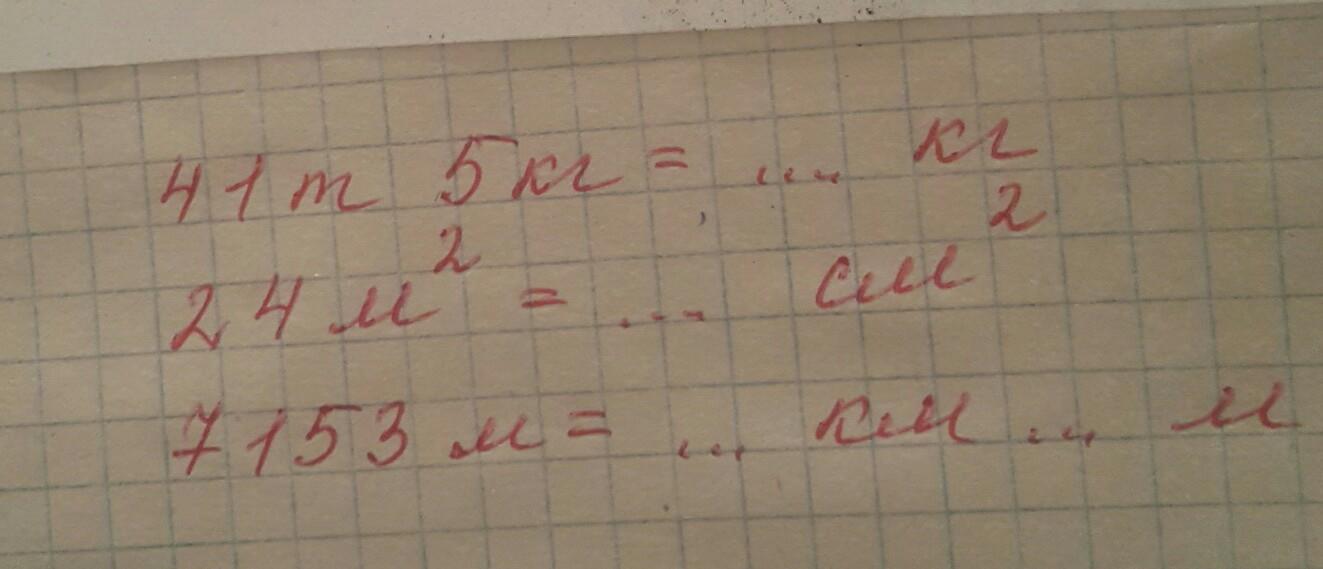 41т 5кг = ... кг
24 м² = ... см²
7153 м = ... км ... м